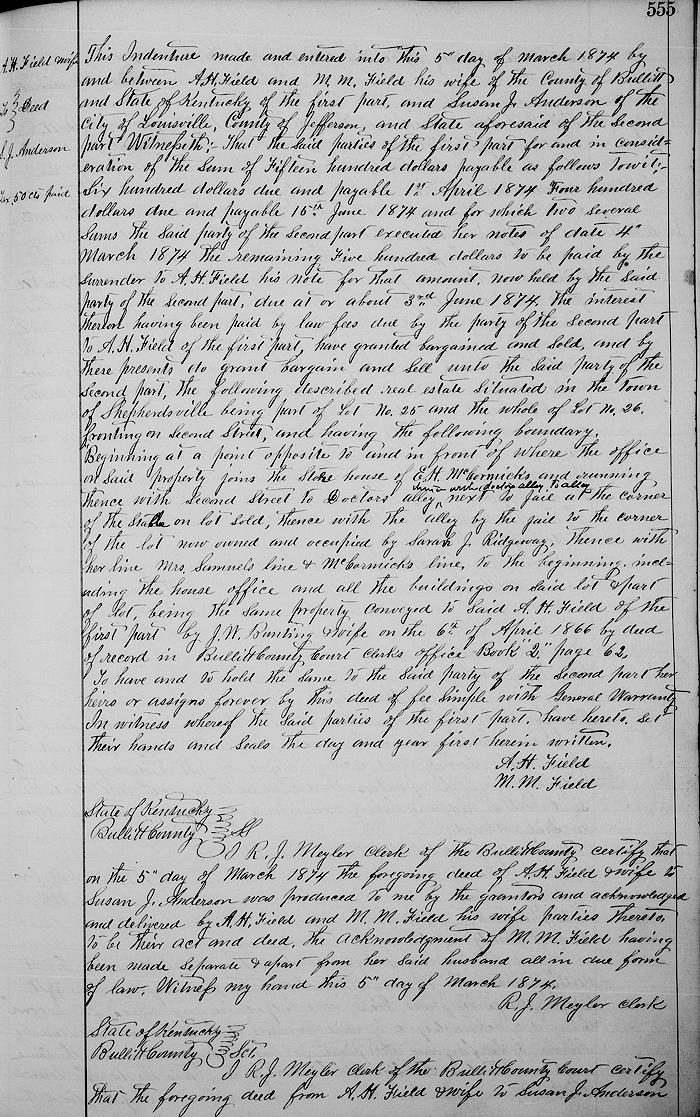 555
A.H. Field & wife
To } Deed
S. J. Anderson
Tax 50 cts paid
This Indenture made and entered into this 5" day of March 1874 by
and between A.H. Field and M. M. Field his wife of the County of Bullitt
and State of Kentucky of the first part, and Susan J. Anderson of the
City of Louisville, County of Jefferson, and State aforesaid of the Second
part Witnesseth;- That the Said parties of the first part for and in consid=
eration of the Sum of Fifteen hundred dollars payable as follows Towit;-
Six hundred dollars due and payable 1st April 1874 Four hundred
dollars due and payable 15th June 1874 and for which two Several
Sums the Said party of the Second part executed her notes of date 4"
March 1874 the remaining Five hundred dollars to be paid by the
Surrender to A.H. Field his note for that amount, now held by the Said
party of the Second part, due at or about 3rd June 1874, the interest
thereon having been paid by law fees due by the party of the Second part
to A.H. Field of the first part, have granted bargained and Sold, and by
these presents do grant bargain and Sell unto the Said party of the
Second part, the following described real estate Situated in the Town
of Shepherdsville being part of Lot No. 25 and the whole of Lot No. 26,
fronting on Second Street, and having the following boundary.
Beginning at a point opposite to and in front of where the office
on Said property joins the Store house of E.H. McCormicks and running
thence with Second Street to Doctors alley, next to jail at the corner
thence with doctors alley to alley
of the Stable on lot Sold, thence with the alley by the jail to the corner
of the lot now owned and occupied by Sarah J. Ridgeway, Thence with
her line Mrs. Samuels line & McCormicks line, to the beginning, incl=
uding the house office and all the buildings on Said lot & part
of lot, being the Same property conveyed to Said A.H. Field of the
first part by J. W. Bunting & wife on the 6th of April 1866 by deed
of record in Bullitt County Court Clerks office Book "2" page 62.
To have and to hold the Same to the Said party of the Second part her
heirs or assigns forever by this deed of fee Simple with General Warranty
In witness whereof the Said parties of the first part, have hereto Set
their hands and Seals the day and year first herein written.
A.H. Field
M.M. Field
State of Kentucky
Bullitt County } Sct
I R. J. Meyler Clerk of the Bullitt County certify that
on the 5" day of March 1874 the foregoing deed of A.H. Field & wife to
Susan J. Anderson was produced to me by the grantors and acknowledged
and delivered by A.H. Field and M. M. Field his wife parties thereto,
to be their act and deed, the acknowledgment of M. M. Field having
been made Separate & apart from her Said husband all in due form
of law. Witness my hand this 5" day of March 1874.
R. J. Meyler clerk
State of Kentucky
Bullitt County } Sct.
I R.J. Meyler Clerk of the Bullitt County Court certify
that the foregoing deed from A.H. Field & wife to Susan J. Anderson